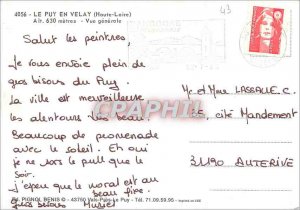 43
4056 - LE PUY EN VELAY (Haute-Loire)
Alt. 630 mètres - Vue générale
Salut les peintres,
Je vous envoie plein de
gros bisous du Puy.
La ville est merveilleuse
les alentours aussi beau.
Beaucoup de promenade
avec le soleil. Eh oui
je ne sors le pull que le
soir.
J'espère que le moral est au
beau fixe.
Gros bisous Muriel
Mr et Mme LASSALLE C.
35, cité Mandement
31190 AUTERIVE
PIGNOL DENIS - 43750 Vals-Près-Le Puy - Tél. 71.09.59.95 -
CPARAMA.COM